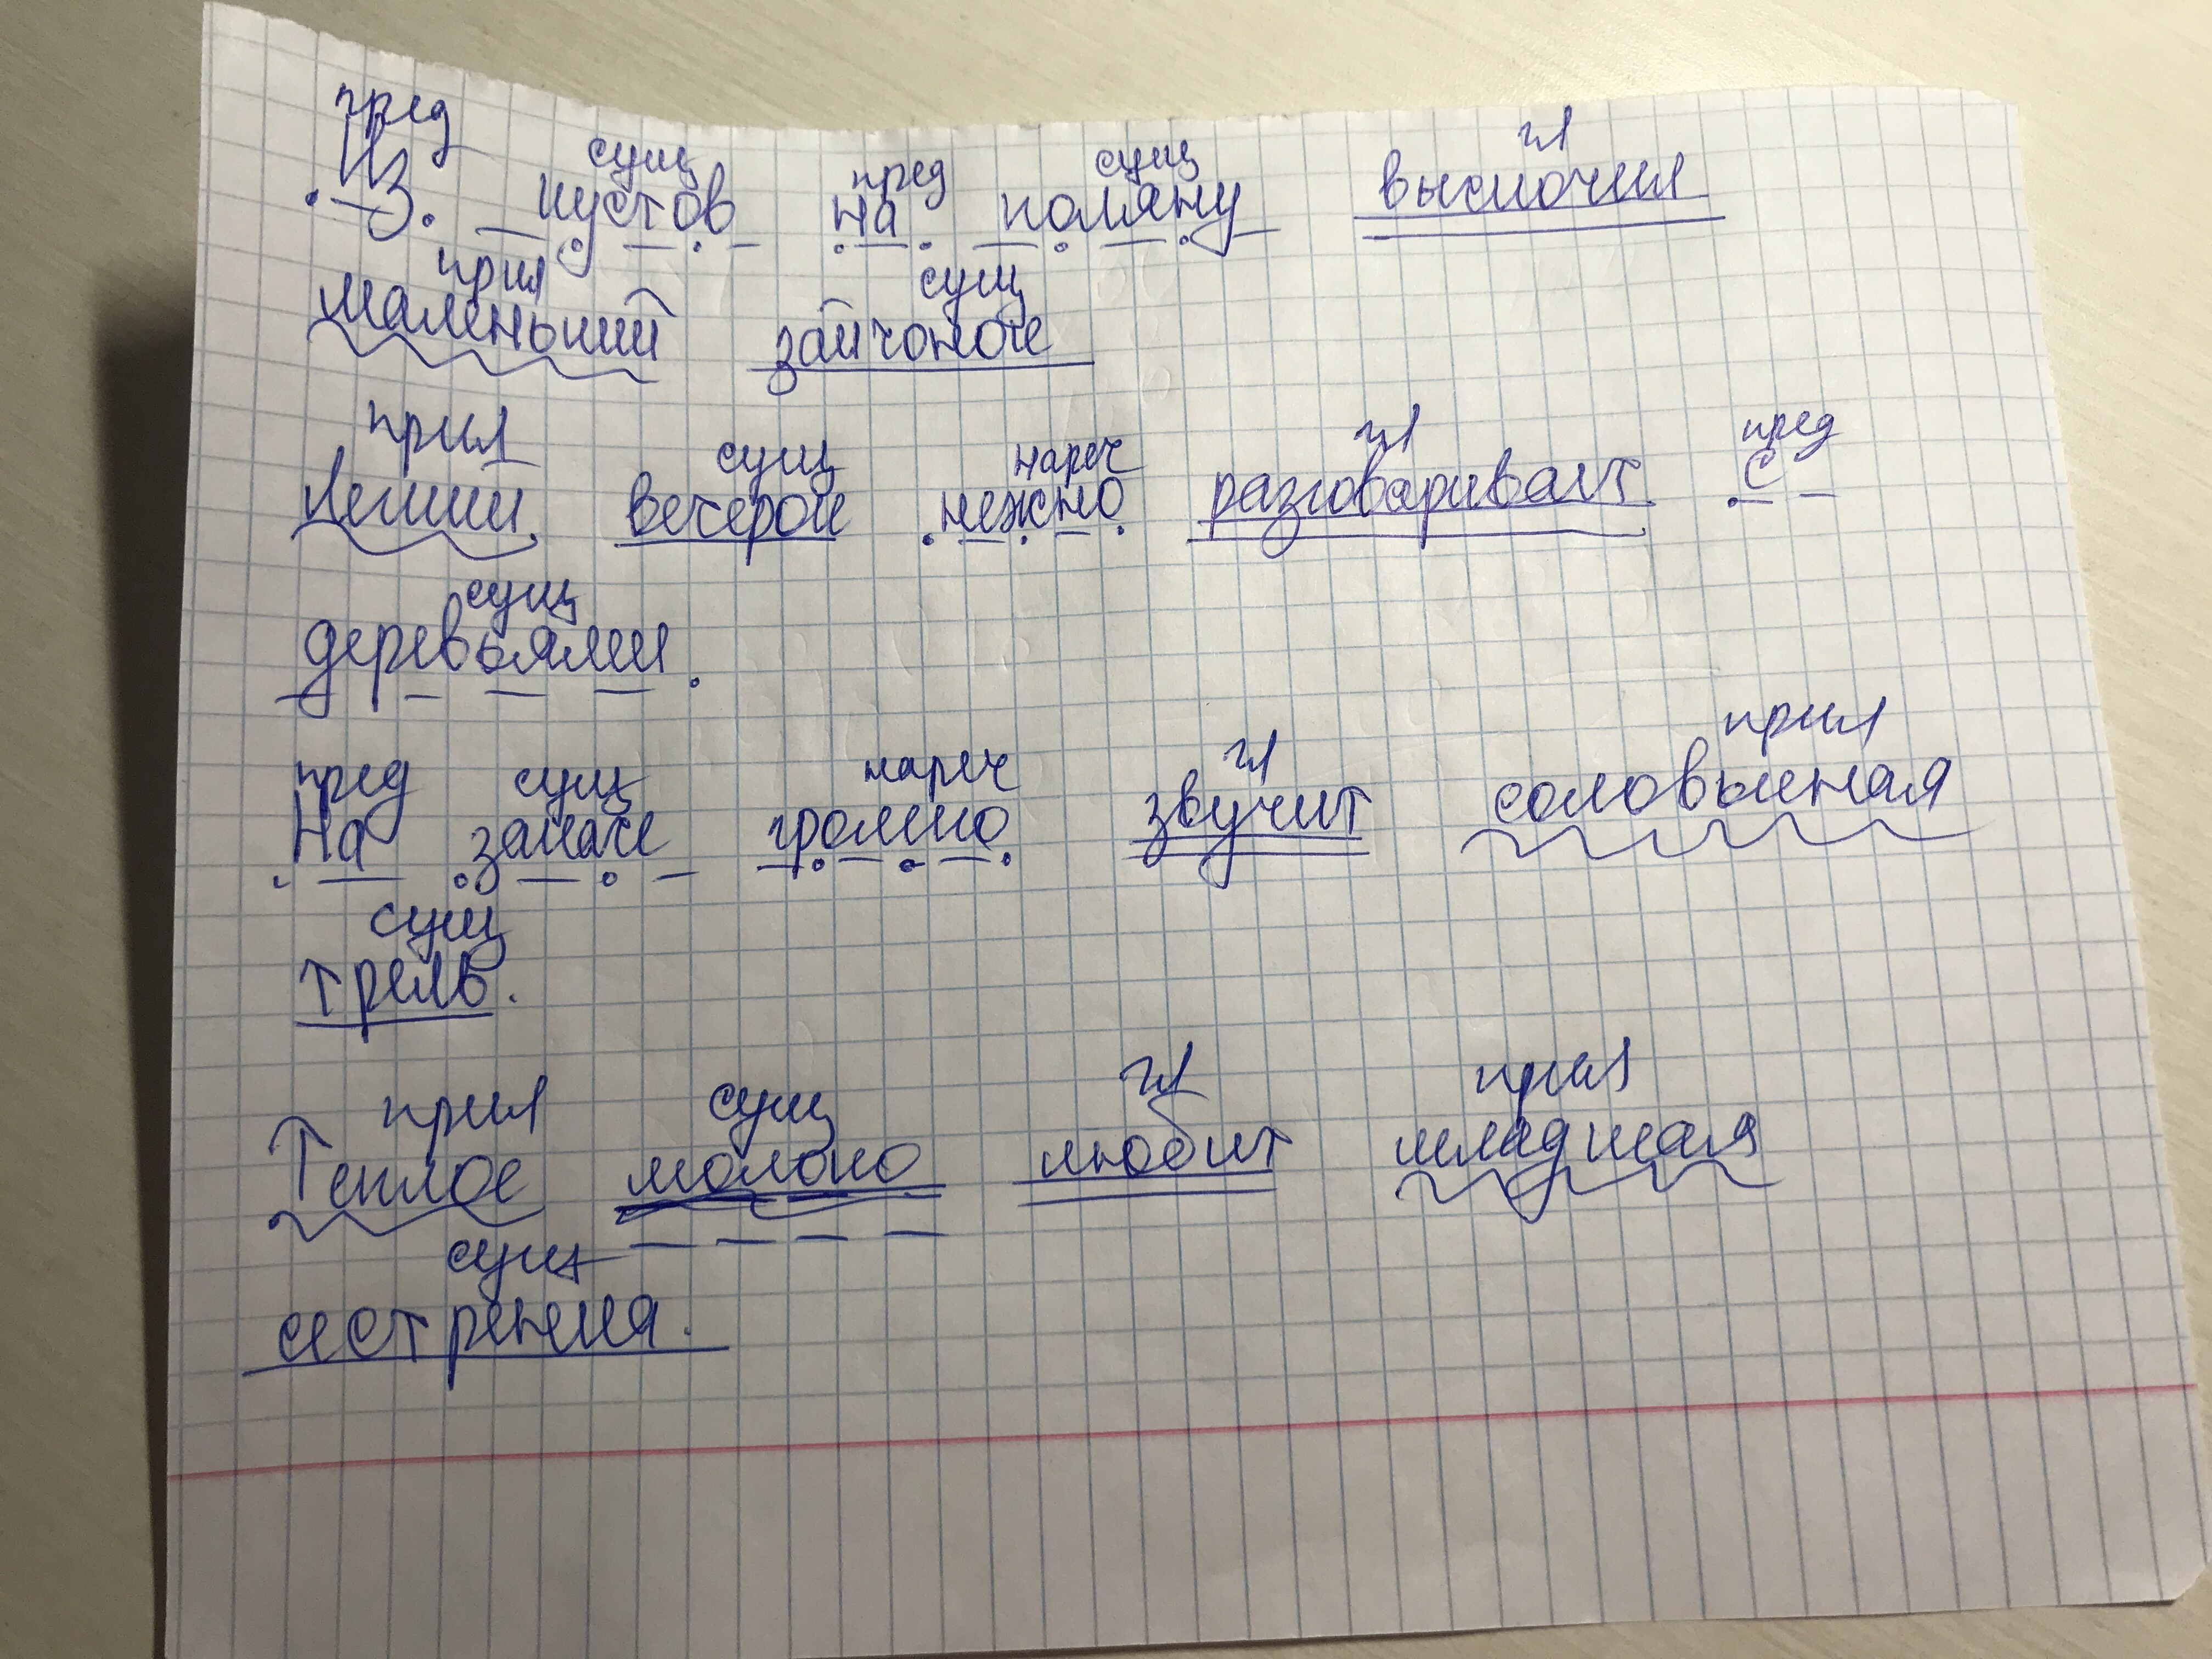 пред сущ пред сущ гл
Из кустов на поляну выскочил
прил сущ
маленький зайчонок
прил сущ нареч гл пред
Легкий ветерок нежно разговаривает с
сущ
деревьями.
пред сущ нареч гл прил
На закате громко звучит соловьиная
сущ
трель.
прил сущ гл прил
Теплое молоко любит младшая
сущ
сестренка.